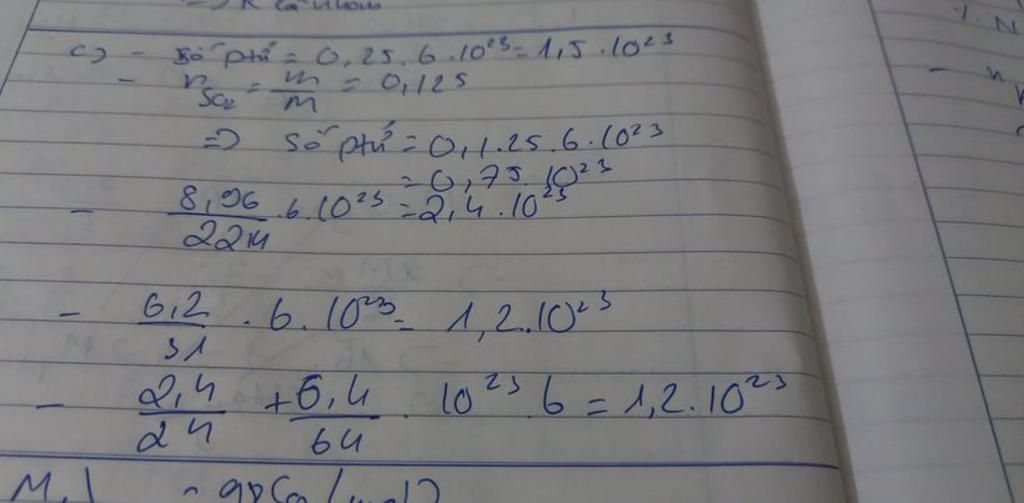 c) - số ptử = 0,25.6.10²³ = 1,5.10²³
- n SO₂ = m/M = 0,125
=> số ptử = 0,1.25.6.10²³
= 0,75.10²³
- 8,96/22,4 .6.10²³ = 2,4.10²³
- 6,2/31 . 6.10²³ = 1,2.10²³
- 2,4/24 + 6,4/64 . 10²³.6 = 1,2.10²³